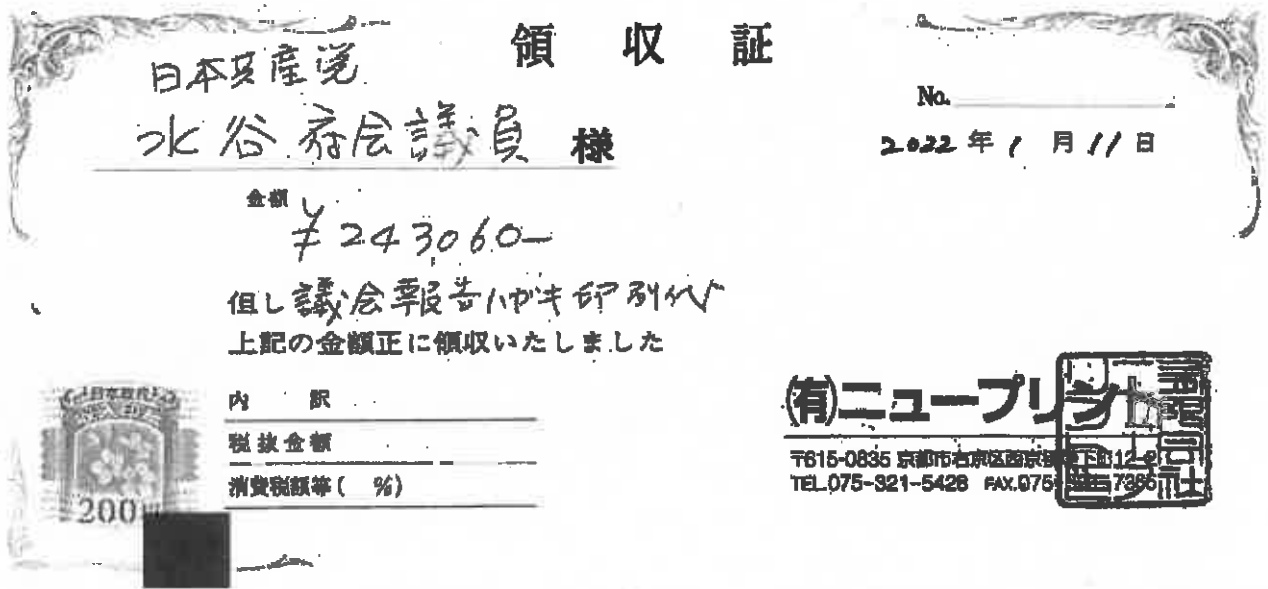 領収証
日本共産党
水谷府会議員 様
No.
2022年1月11日
金額
¥243060-
但し 議会報告ハガキ印刷代
上記の金額正に領収いたしました
日本政府
200円
内訳
税抜金額
消費税額等( %)
(有)ニュープリント
〒615-0835 京都市右京区西京極
TEL.075-321-5428 FAX.075